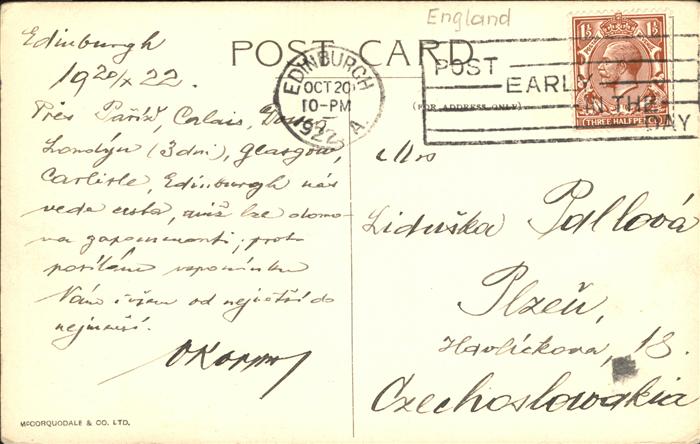 England
POST CARD
(FOR ADDRESS ONLY)
EDINBURGH
OCT 20
10-PM
1922
A.
POST EARLY
IN THE
DAY
THREE HALFPENCE
Edinburgh
19 20/X 22.
Přes Paříž, Calais,
Londýn (3 dni), Glasgow,
Carlisle, Edinburgh nás
vede cesta, aniž lze domo-
va zapomenouti; proto
posílám vzpomínku
Vám všem od největší do
nejmenší.
Mrs
Liduška Pallová
Plzeň,
Havlíčkova, 18.
Czechoslowakia
McCORQUODALE & CO. LTD.